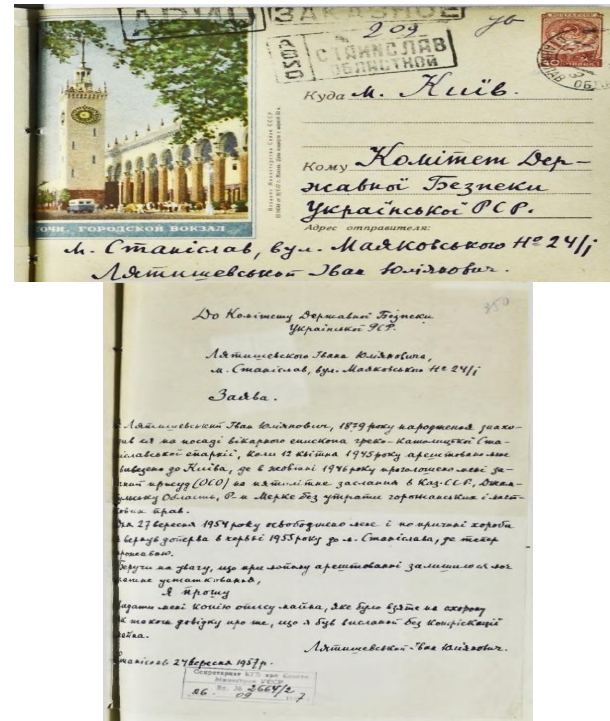 АВИА
ЗАКАЗНОЕ
209
СТАНИСЛАВ
ОБЛАСТНОЙ
Куда м. Київ.
Кому Комітет Дер-
жавної Безпеки
Української РСР.
СОЧИ. ГОРОДСКОЙ ВОКЗАЛ
Адрес отправителя:
м. Станіслав, вул. Маяковського № 24/1
Лятишевський Іван Юліянович.
350
До Комітету Державної Безпеки
Української РСР.
Лятишевского Івана Юліяновича,
м. Станіслав, вул. Маяковського № 24/1
Заява.
Лятишевський Іван Юліянович, 1879 року народження знахо-
див ся на посаді вікарного єпископа греко-католицької Ста-
ніславської епархії, коли 12 квітня 1945 року арештовано мене
вивезено до Київа, де в жовтні 1946 року проголошено мені за-
очний присуд (ОСО) на пятилітне заслання в Каз. ССР, Джам-
бульску Область, Р-н Мерке без утрати горожанських і маєт-
кових прав.
Дня 27 вересня 1954 року освобождено мене і по причині хороби
вернув доперва в червні 1955 року до м. Станіслава, де тепер
проживаю.
Беручи на увагу, що при моїому арештованні залишилося моє
устатковання,
Я прошу
видати мені копію опису майна, яке було взяте на охорону
також довідку про те, що я був висланий без конфіскації
майна.
Лятишевський Іван Юліянович.
Станіслав 24 вересня 1957 р.
Секретариат КГБ при Совете
Министров УССР
Вх. № 2664/2
26. 09 7